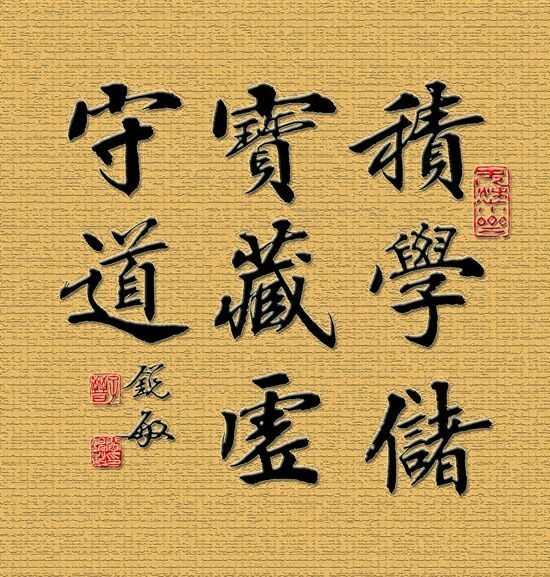 積學儲
寶藏虚
守道
銳敏